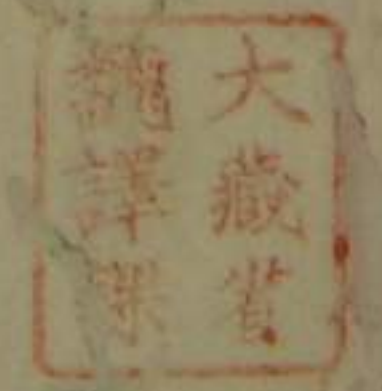 大藏省
飜譯課